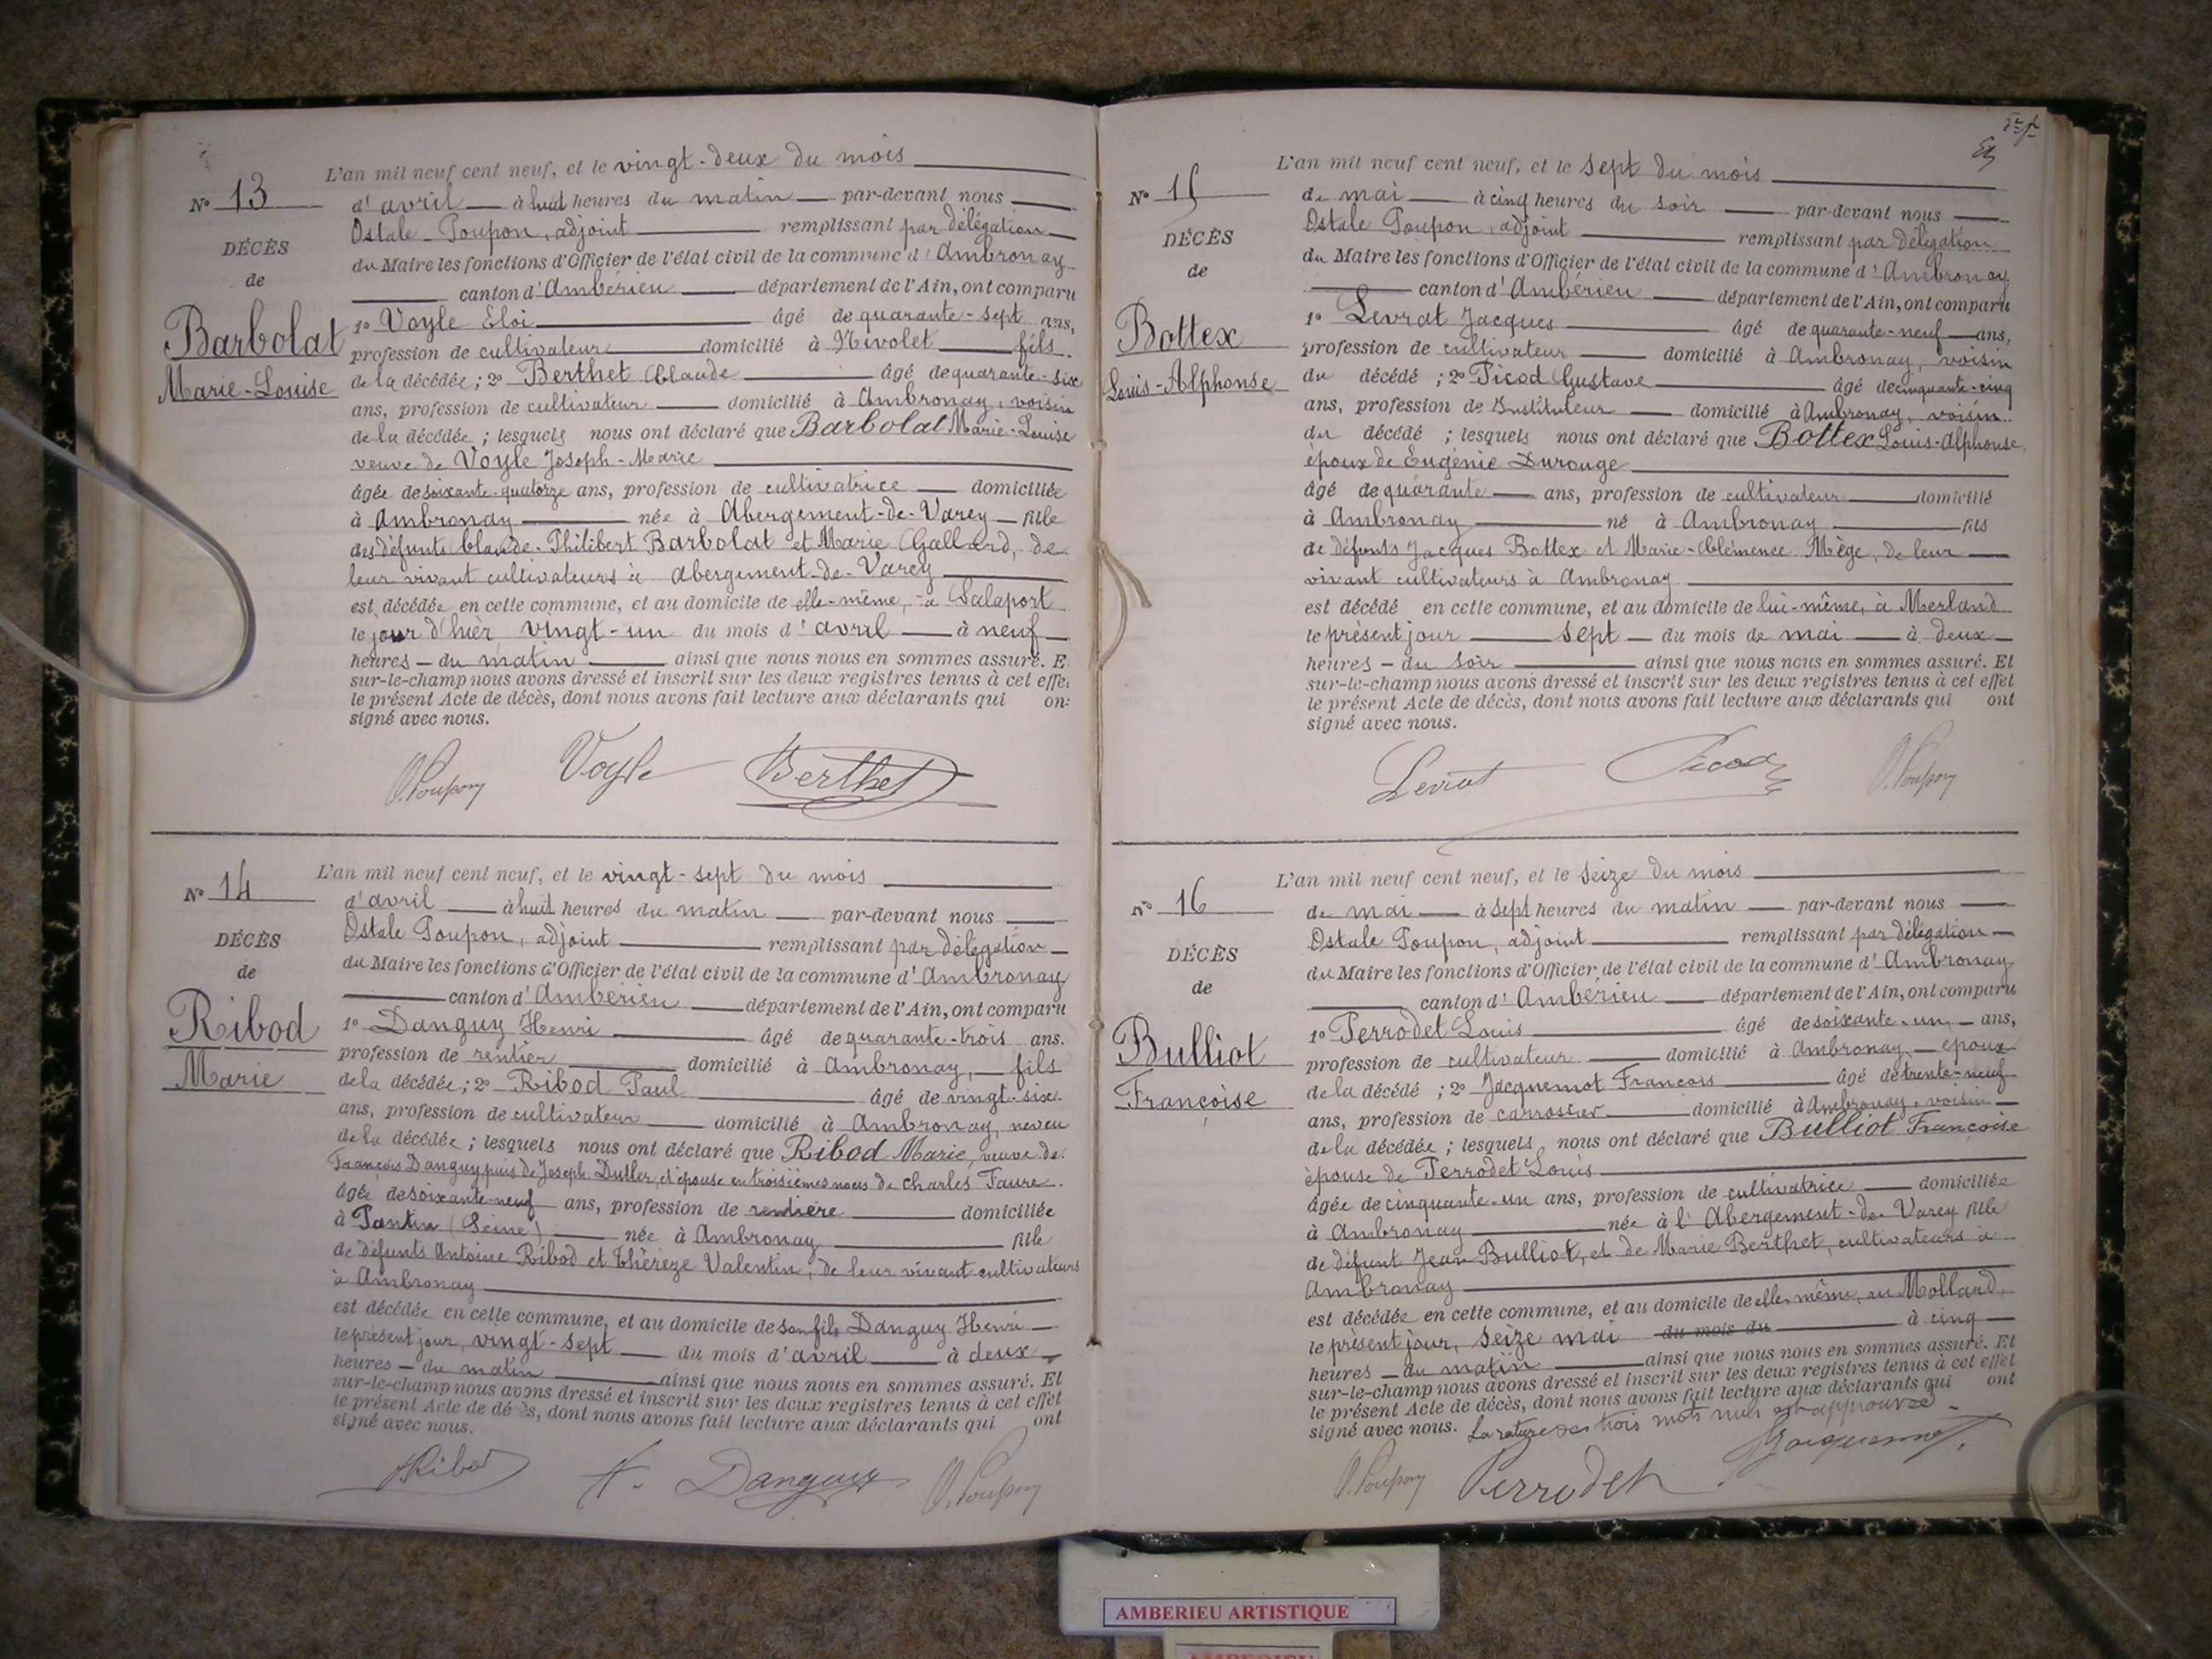 L'an mil neuf cent neuf, et le vingt-deux du mois
N° 13
d'avril à huit heures du matin par-devant nous
Ostale Poupon, adjoint remplissant par délégation
DÉCÈS
du Maire les fonctions d'Officier de l'état civil de la commune d'Ambronay
de
canton d'Ambérieu département de l'Ain, ont comparu
Barbolat
1° Voyle Eloi âgé de quarante-sept ans,
profession de cultivateur domicilié à Nivolet fils
Marie-Louise
de la décédée ; 2° Berthet Claude âgé de quarante-six
ans, profession de cultivateur domicilié à Ambronay, voisin
de la décédée ; lesquels nous ont déclaré que Barbolat Marie-Louise
veuve de Voyle Joseph-Marie
âgée de soixante-quatorze ans, profession de cultivatrice domiciliée
à Ambronay née à Abergement-de-Varey fille
des défunts Claude-Philibert Barbolat et Marie Gallard, de
leur vivant cultivateurs à Abergement-de-Varey
est décédée en cette commune, et au domicile de elle-même, à Salaport
le jour d'hier vingt-un du mois d'avril à neuf
heures du matin ainsi que nous nous en sommes assuré. E
sur-le-champ nous avons dressé et inscrit sur les deux registres tenus à cet effe
le présent Acte de décès, dont nous avons fait lecture aux déclarants qui on
signé avec nous.
O. Poupon Voyle Berthet
L'an mil neuf cent neuf, et le vingt-sept du mois
N° 14
d'avril à huit heures du matin par-devant nous
Ostale Poupon, adjoint remplissant par délégation
DÉCÈS
du Maire les fonctions d'Officier de l'état civil de la commune d'Ambronay
de
canton d'Ambérieu département de l'Ain, ont comparu
Ribod
1° Danguy Henri âgé de quarante-trois ans.
profession de rentier domicilié à Ambronay, fils
Marie
de la décédée ; 2° Ribod Paul âgé de vingt-six
ans, profession de cultivateur domicilié à Ambronay, neveu
de la décédée ; lesquels nous ont déclaré que Ribod Marie, veuve de
François Danguy puis de Joseph Duller, et épouse en troisièmes noces de Charles Faure.
âgée de soixante-neuf ans, profession de rentière domiciliée
à Pantin (Seine) née à Ambronay fille
de défunts Antoine Ribod et Thérèze Valentin, de leur vivant cultivateurs
à Ambronay
est décédée en cette commune, et au domicile de son fils Danguy Henri
le présent jour, vingt-sept du mois d'avril à deux
heures du matin ainsi que nous nous en sommes assuré. Et
sur-le-champ nous avons dressé et inscrit sur les deux registres tenus à cet effet
le présent Acte de décès, dont nous avons fait lecture aux déclarants qui ont
signé avec nous.
Ribod H. Danguy O. Poupon
L'an mil neuf cent neuf, et le sept du mois
N° 15
de mai à cinq heures du soir par-devant nous
Ostale Poupon, adjoint remplissant par délégation
DÉCÈS
du Maire les fonctions d'Officier de l'état civil de la commune d'Ambronay
de
canton d'Ambérieu département de l'Ain, ont comparu
Bottex
1° Levrat Jacques âgé de quarante-neuf ans,
profession de cultivateur domicilié à Ambronay, voisin
Louis-Alphonse
du décédé ; 2° Picod Gustave âgé de cinquante-cinq
ans, profession de Instituteur domicilié à Ambronay, voisin
du décédé ; lesquels nous ont déclaré que Bottex Louis-Alphonse
époux de Eugénie Durouge
âgé de quarante ans, profession de cultivateur domicilié
à Ambronay né à Ambronay fils
de défunts Jacques Bottex et Marie-Clémence Mège, de leur
vivant cultivateurs à Ambronay
est décédé en cette commune, et au domicile de lui-même, à Merland
le présent jour sept du mois de mai à deux
heures du soir ainsi que nous nous en sommes assuré. Et
sur-le-champ nous avons dressé et inscrit sur les deux registres tenus à cet effet
le présent Acte de décès, dont nous avons fait lecture aux déclarants qui ont
signé avec nous.
Levrat Picod O. Poupon
L'an mil neuf cent neuf, et le seize du mois
N° 16
de mai à sept heures du matin par-devant nous
Ostale Poupon, adjoint remplissant par délégation
DÉCÈS
du Maire les fonctions d'Officier de l'état civil de la commune d'Ambronay
de
canton d'Ambérieu département de l'Ain, ont comparu
Bulliot
1° Perrodet Louis âgé de soixante-un ans,
profession de cultivateur domicilié à Ambronay époux
Françoise
de la décédé ; 2° Jacquemot François âgé de trente-neuf
ans, profession de carrossier domicilié à Ambronay, voisin
de la décédée ; lesquels nous ont déclaré que Bulliot Françoise
épouse de Perrodet Louis
âgée de cinquante-un ans, profession de cultivatrice domiciliée
à Ambronay née à l'Abergement-de-Varey fille
de défunt Jean Bulliot, et de Marie Berthet, cultivateurs à
Ambronay
est décédée en cette commune, et au domicile de elle-même, au Mollard,
le présent jour, seize mai du mois du à cinq
heures du matin ainsi que nous nous en sommes assuré. Et
sur-le-champ nous avons dressé et inscrit sur les deux registres tenus à cet effet
le présent Acte de décès, dont nous avons fait lecture aux déclarants qui ont
signé avec nous. La rature des trois mots nuls est approuvée
O. Poupon Perrodet Jacquemot
AMBERIEU ARTISTIQUE
AMBERIEU